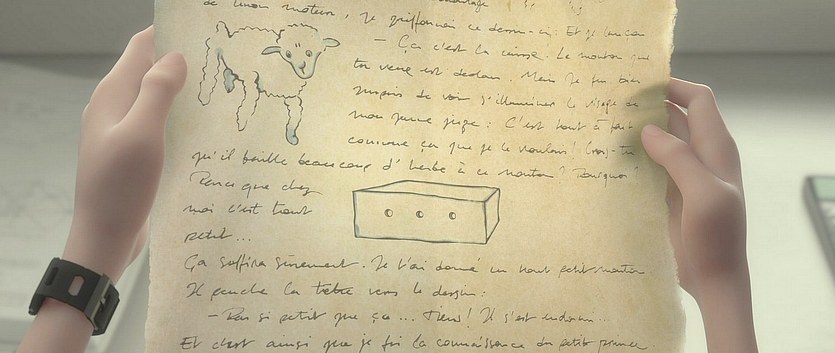 de mon moteur, je griffonnai ce dessin-ci: Et je lançai
— Ça c'est la caisse. Le mouton que
tu veux est dedans. Mais je fus bien
surpris de voir s'illuminer le visage de
mon jeune juge: C'est tout à fait
comme ça que je le voulais! Crois-tu
qu'il faille beaucoup d'herbe à ce mouton? Pourquoi?
Parce que chez
moi c'est tout
petit...
Ça suffira sûrement. Je t'ai donné un tout petit mouton
Il pencha la tête vers le dessin:
— Pas si petit que ça... Tiens! Il s'est endormi...
Et c'est ainsi que je fis la connaissance du petit prince